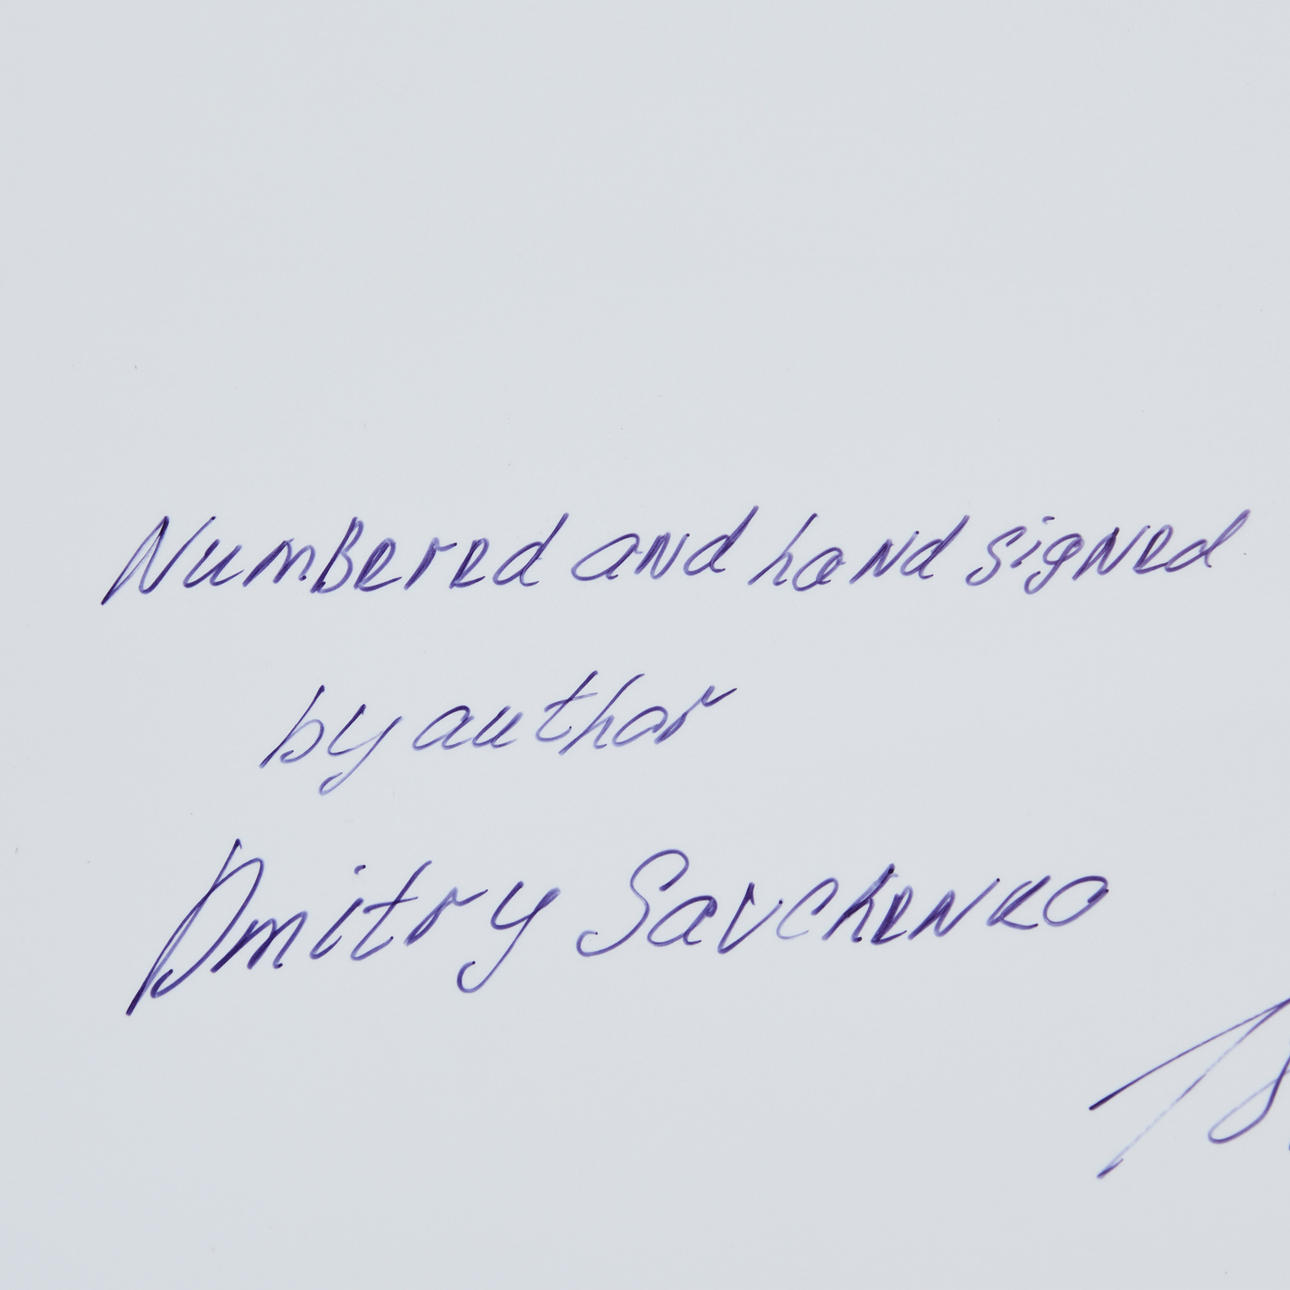 Numbered and hand signed
by author
Dmitry Savchenko